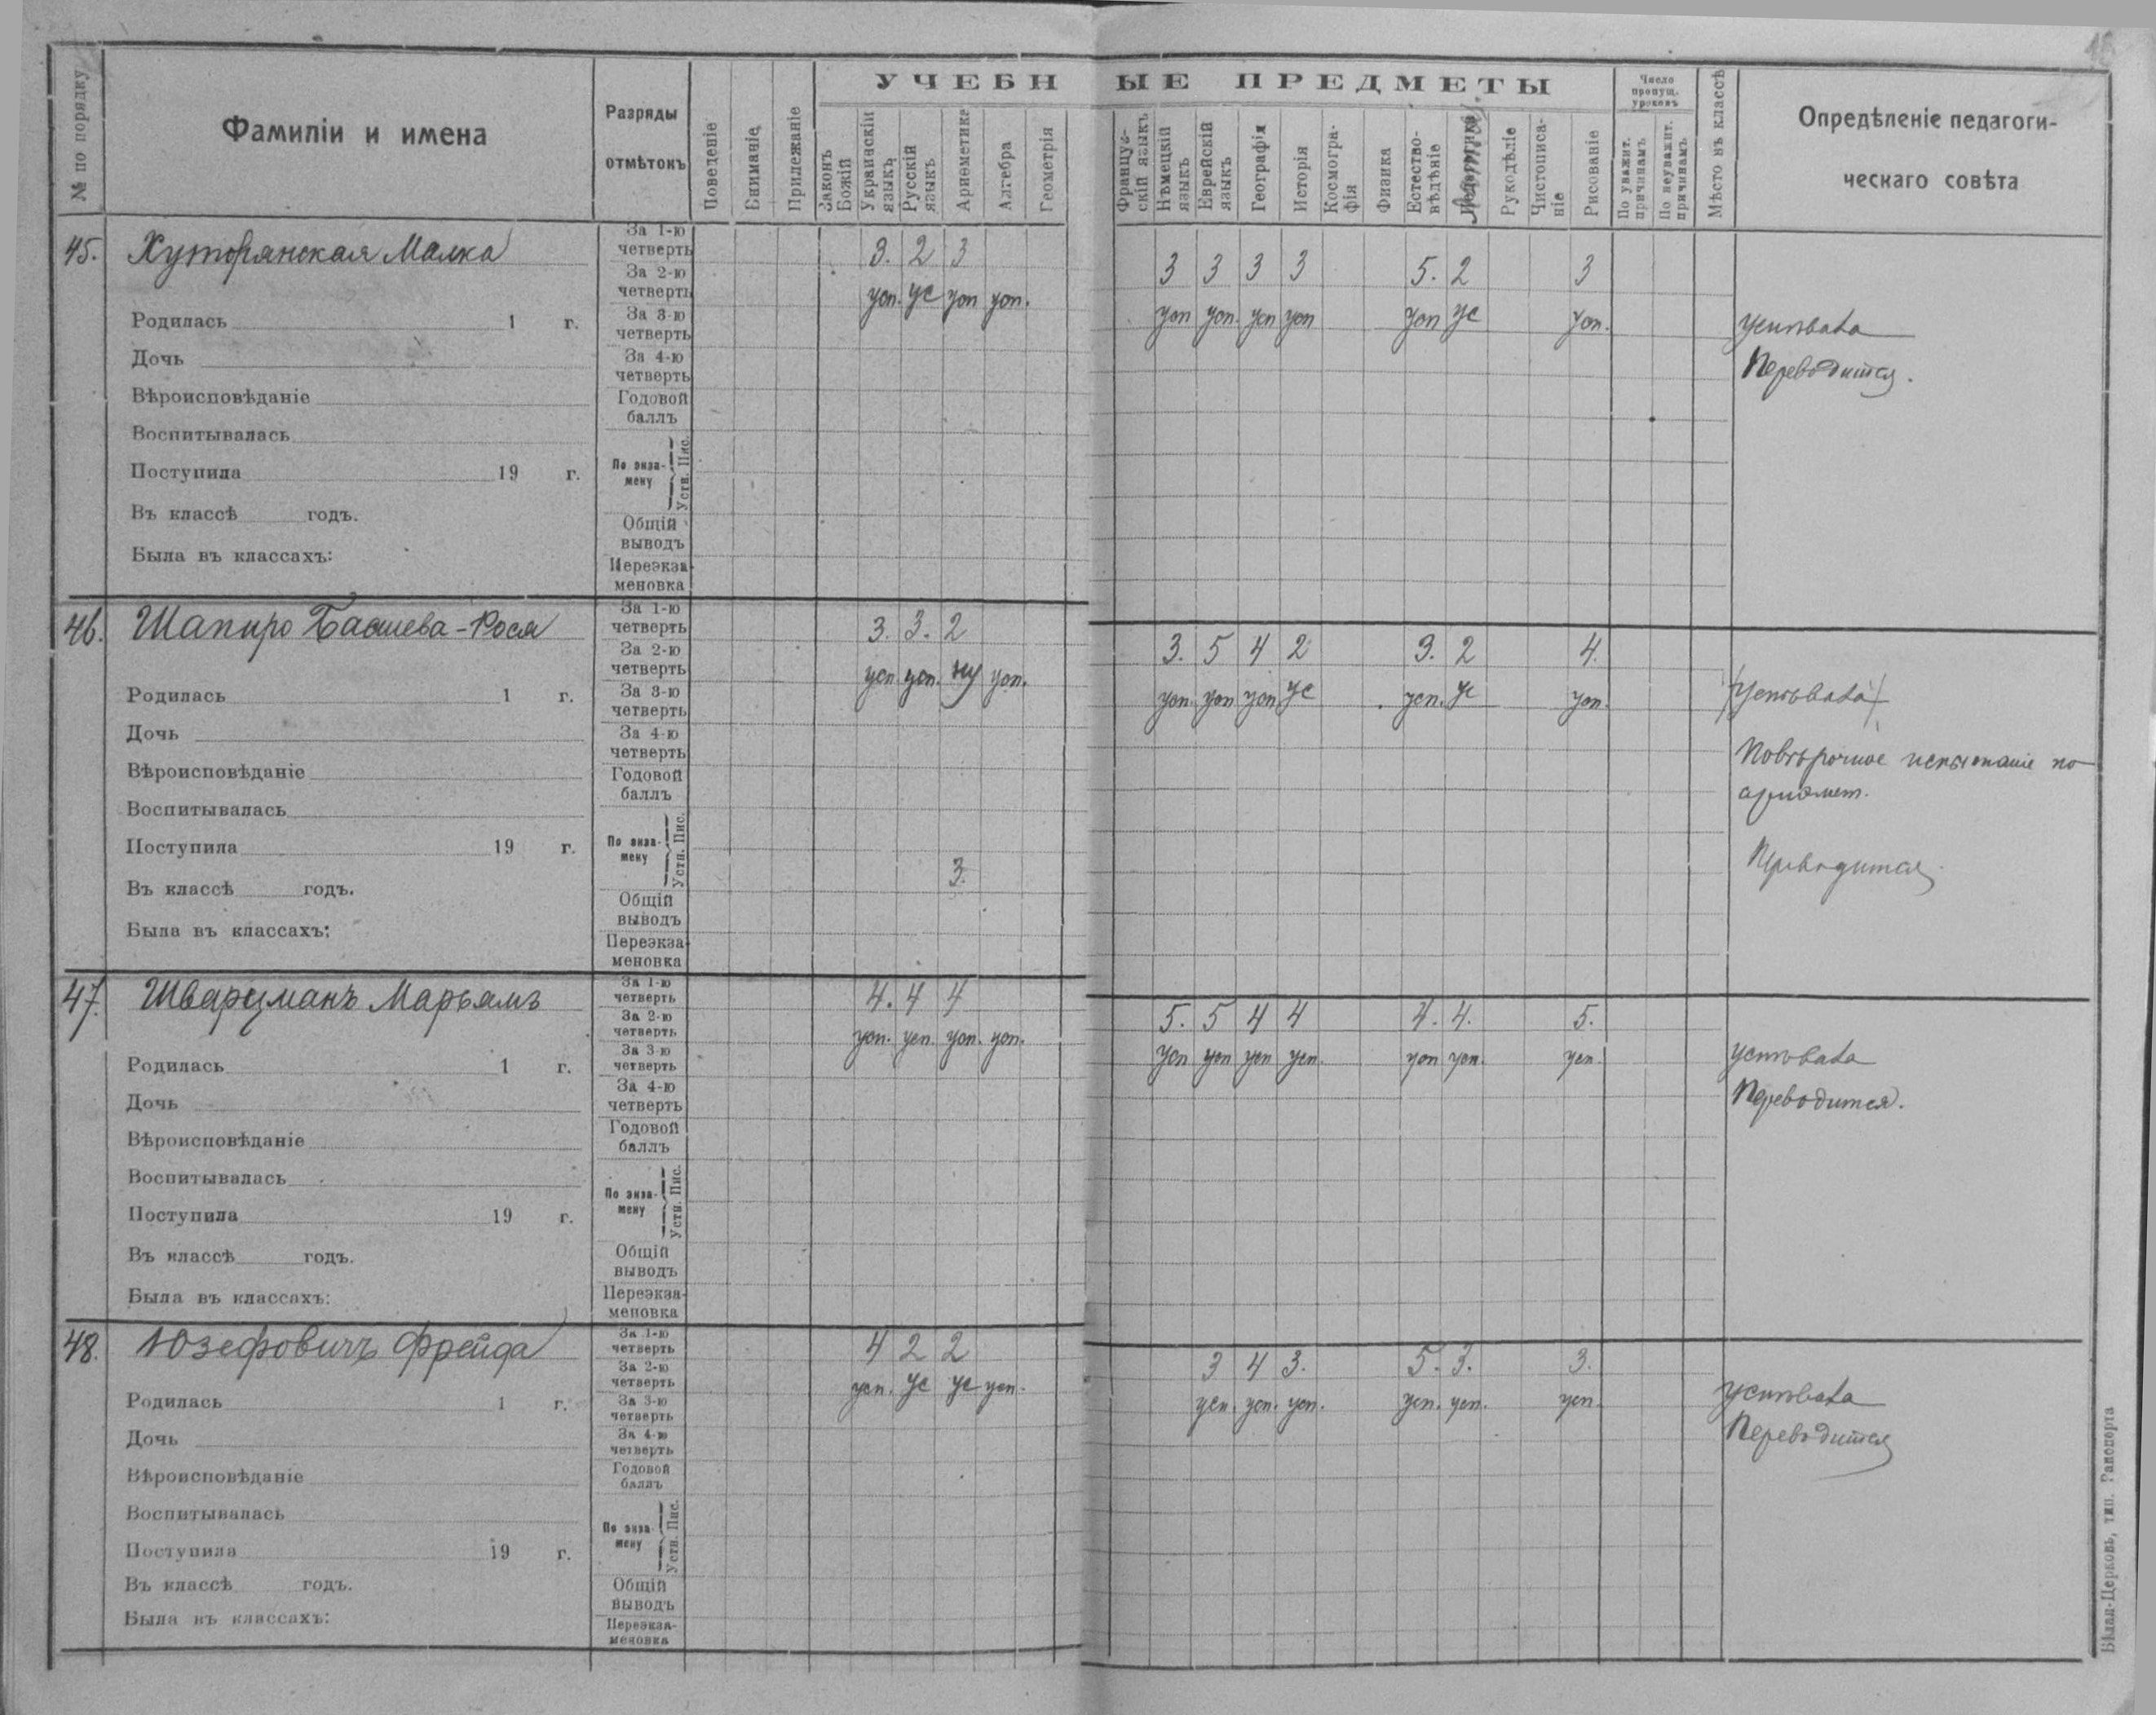 № по порядку
Фамиліи и имена
Разряды отмѣтокъ
Поведеніе
Вниманіе
Прилежаніе
УЧЕБНЫЕ ПРЕДМЕТЫ
Законъ Божій
Украинскій языкъ
Русскій языкъ
Ариѳметика
Алгебра
Геометрія
Француз-скій языкъ
Нѣмецкій языкъ
Еврейскій языкъ
Географія
Исторія
Космогра-фія
Физика
Естество-вѣдѣніе
Рукодѣліе
Чистописа-ніе
Рисованіе
Число пропущ. уроковъ
По уважит. причинамъ
По неуважит. причинамъ
Мѣсто въ классѣ
Опредѣленіе педагоги-
ческаго совѣта
45. Хуторянская Малка
Родилась 1 г.
Дочь
Вѣроисповѣданіе
Воспитывалась
Поступила 19 г.
Въ классѣ годъ.
Была въ классахъ:
За 1-ю четверть
За 2-ю четверть
За 3-ю четверть
За 4-ю четверть
Годовой баллъ
По экза-мену Устн. Пис.
Общій выводъ
Переэкза-меновка
3. 2 3 3 3 3 3 5. 2 3
усп. ус усп усп. усп усп. усп усп усп ус усп.
успѣвала
Переводится.
46. Шапиро Басшева-Рося
Родилась 1 г.
Дочь
Вѣроисповѣданіе
Воспитывалась
Поступила 19 г.
Въ классѣ годъ.
Была въ классахъ:
За 1-ю четверть
За 2-ю четверть
За 3-ю четверть
За 4-ю четверть
Годовой баллъ
По экза-мену Устн. Пис.
Общій выводъ
Переэкза-меновка
3. 3. 2 3. 5 4 2 3. 2 4.
усп. усп. ну усп. усп. усп усп ус усп. ус усп.
3.
успѣвала
Повѣрочное испытаніе по
ариѳмет.
Переводится.
47. Шварцманъ Марьямъ
Родилась 1 г.
Дочь
Вѣроисповѣданіе
Воспитывалась
Поступила 19 г.
Въ классѣ годъ.
Была въ классахъ:
За 1-ю четверть
За 2-ю четверть
За 3-ю четверть
За 4-ю четверть
Годовой баллъ
По экза-мену Устн. Пис.
Общій выводъ
Переэкза-меновка
4. 4 4 5. 5 4 4 4. 4. 5.
усп. усп. усп. усп. усп усп усп усп. усп усп. усп.
успѣвала
Переводится.
48. Юзефовичъ Фрейда
Родилась 1 г.
Дочь
Вѣроисповѣданіе
Воспитывалась
Поступила 19 г.
Въ классѣ годъ.
Была въ классахъ:
За 1-ю четверть
За 2-ю четверть
За 3-ю четверть
За 4-ю четверть
Годовой баллъ
По экза-мену Устн. Пис.
Общій выводъ
Переэкза-меновка
4 2 2 3 4 3. 5. 3. 3.
усп. ус ус усп. усп. усп. усп. усп. усп. усп.
успѣвала
Переводится
Бѣлая-Церковь, тип. Рапопорта